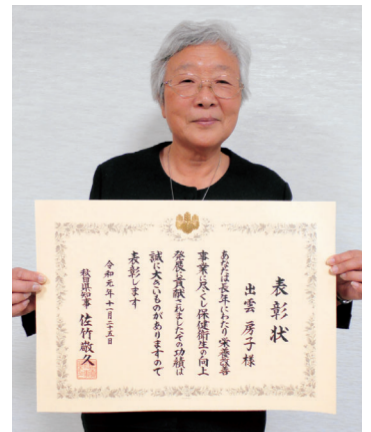 表彰状
出雲房子様
あなたは長年にわたり栄養改善
事業に尽くし保健衛生の向上
発展に貢献されましたその功績は
誠に大きいものがありますので
表彰します
令和元年十一月二十五日
秋田県知事 佐竹敬久